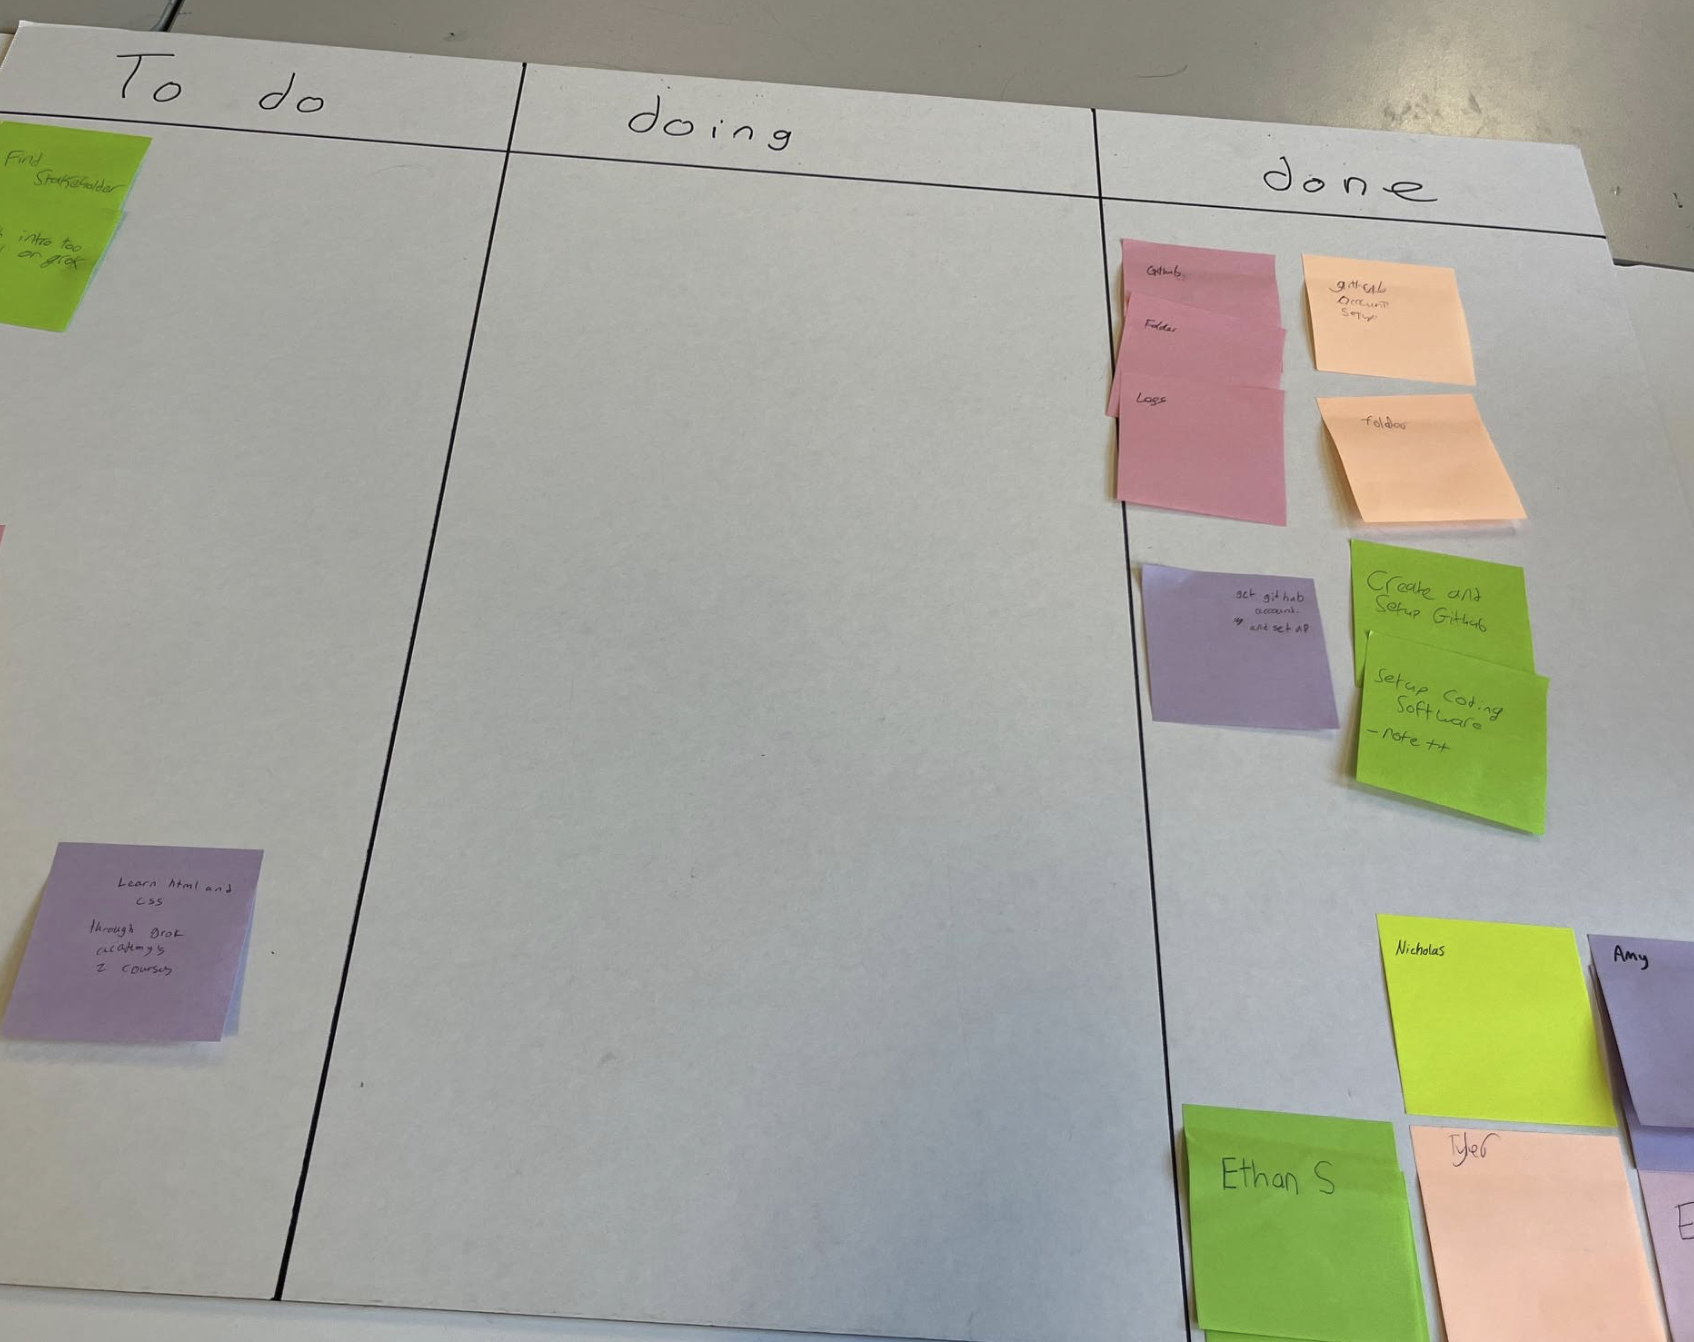 To do
doing
done
Find
Stakeholder
intro too
on grok
Learn html and
css
through grok
academy's
2 courses
Github
Folder
Logs
github
account
setup
folder
get github
account
and set up
Create and
Setup Github
Setup Coding
Software
- note ++
Nicholas
Amy
Ethan S
Tyler
E